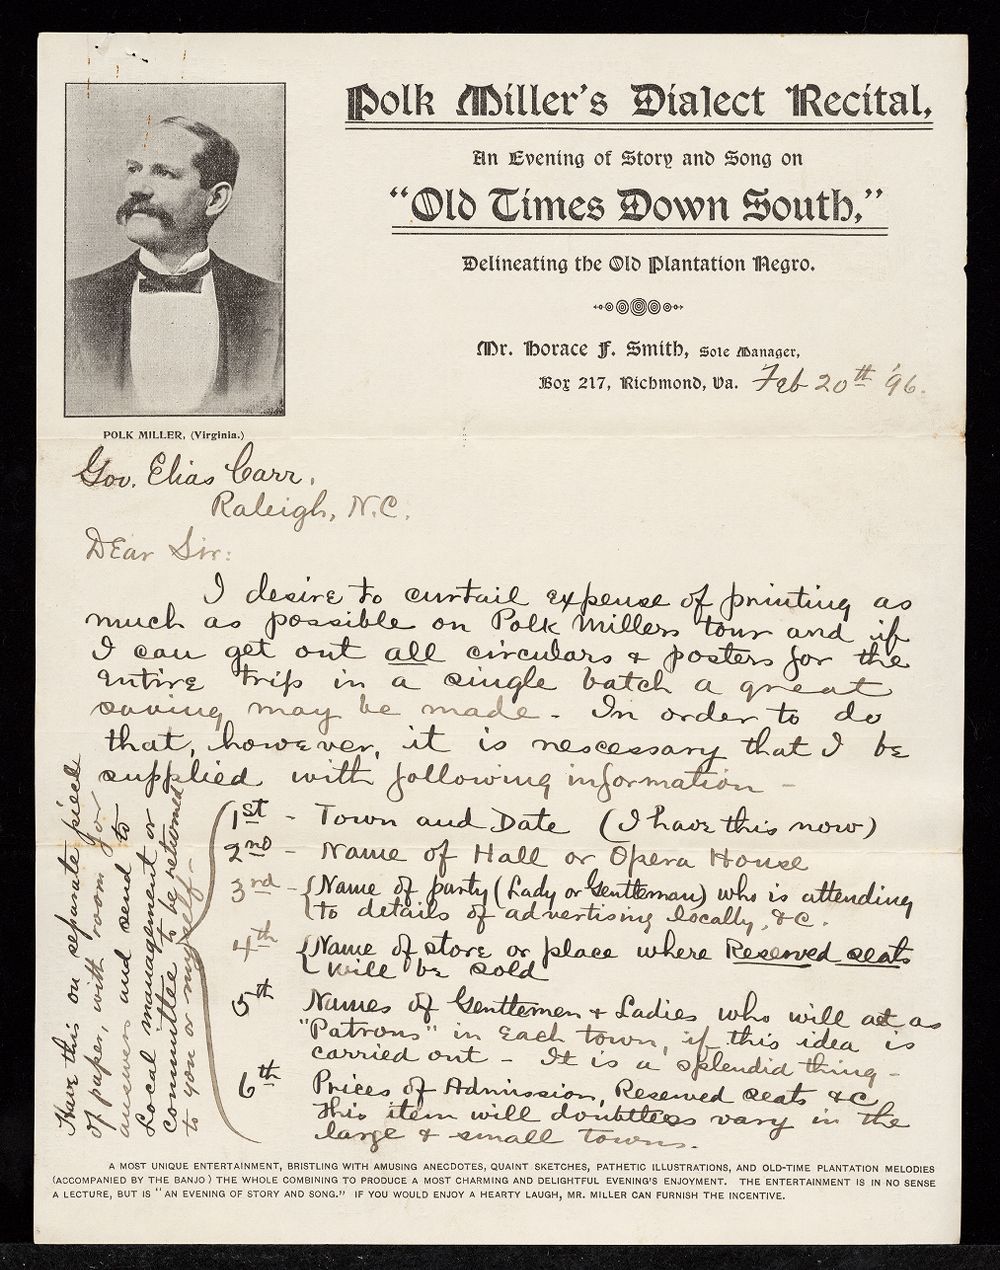 Polk Miller's Dialect Recital,
An Evening of Story and Song on
"Old Times Down South,"
Delineating the Old Plantation Negro.
Mr. Horace F. Smith, Sole Manager,
Box 217, Richmond, Va. Feb 20th '96.
POLK MILLER, (Virginia.)
Gov. Elias Carr,
Raleigh, N.C.
Dear Sir:
I desire to curtail expense of printing as
much as possible on Polk Millers tour and if
I can get out all circulars & posters for the
entire trip in a single batch a great
saving may be made - In order to do
that, however, it is nescessary that I be
supplied with following information -
1st - Town and Date (I have this now)
2nd - Name of Hall or Opera House
3rd - Name of party (Lady or Gentleman) who is attending
to details of advertising locally, &c.
4th Name of store or place where Reserved seats
will be sold
5th Names of Gentlemen & Ladies who will act as
"Patrons" in each town, if this idea is
carried out - It is a splendid thing -
6th Prices of Admission, Reserved seats &c
This item will doubtless vary in the
large & small towns.
Have this on separate piece
of paper, with room for
answers and send to
Local management or
Committee to be returned
to you or myself -
A MOST UNIQUE ENTERTAINMENT, BRISTLING WITH AMUSING ANECDOTES, QUAINT SKETCHES, PATHETIC ILLUSTRATIONS, AND OLD-TIME PLANTATION MELODIES
(ACCOMPANIED BY THE BANJO) THE WHOLE COMBINING TO PRODUCE A MOST CHARMING AND DELIGHTFUL EVENING'S ENJOYMENT. THE ENTERTAINMENT IS IN NO SENSE
A LECTURE, BUT IS "AN EVENING OF STORY AND SONG." IF YOU WOULD ENJOY A HEARTY LAUGH, MR. MILLER CAN FURNISH THE INCENTIVE.